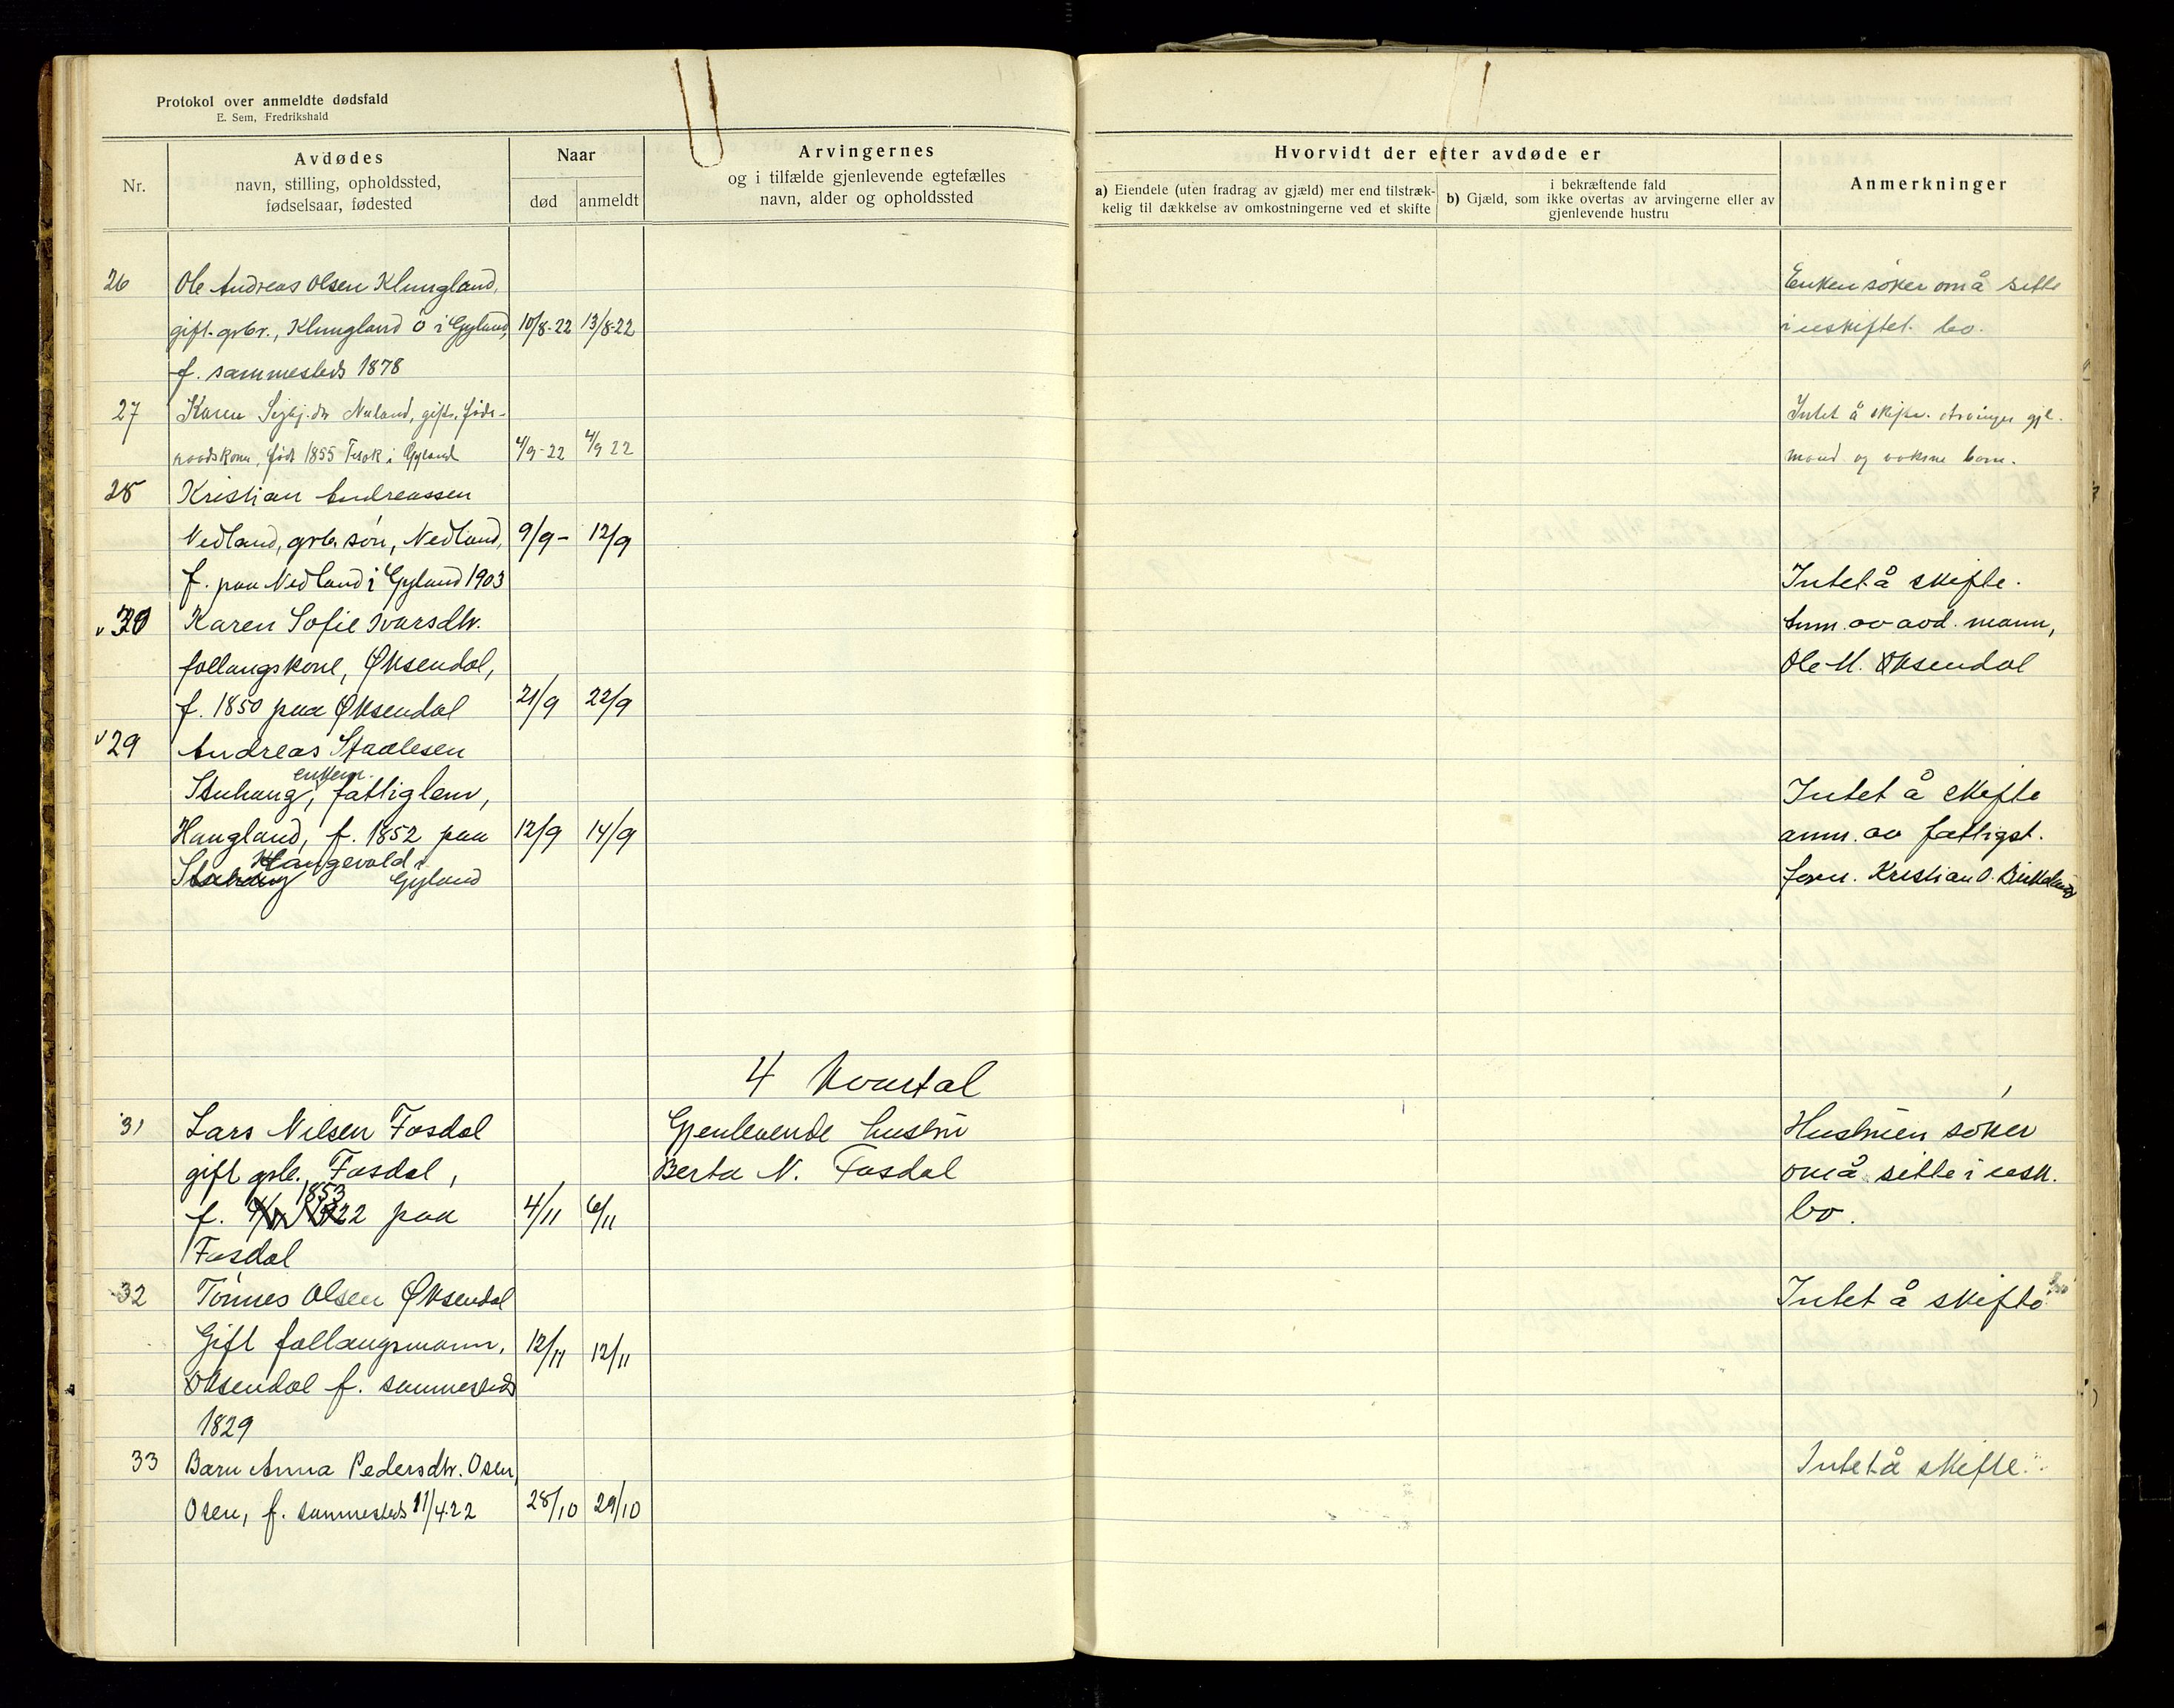 Protokol over anmeldte dødsfald
E. Sem, Fredrikshald
Nr.
Avdødes
navn, stilling, opholdssted,
fødselsaar, fødested
Naar
død
anmeldt
Arvingernes
og i tilfælde gjenlevende egtefælles
navn, alder og opholdssted
Hvorvidt der efter avdøde er
a) Eiendele (uten fradrag av gjæld) mer end tilstræk-
kelig til dækkelse av omkostningerne ved et skifte
i bekræftende fald
b) Gjæld, som ikke overtas av arvingerne eller av
gjenlevende hustru
Anmerkninger
26 Ole Andreas Olsen Klungland, Enken søker om å sitte
gift. grbr., Klungland ö i Gyland, 10/8-22 13/8-22 i uskiftet bo.
f. sammesteds 1878
27 Karen Sigbj.dtr Nuland, gift. føde- Intet å skifte. Arvinger gjl.
raadskone, født 1855 i Gyland 4/9-22 4/9 22 mand og voksne barn.
28 Kristian Andreassen
Nedland, grb. søn, Nedland, 9/9- 12/9
f. paa Nedland i Gyland 1903 Intet å skifte.
v 30 Karen Sofie Ivarsdtr. Anm. av avd. mann,
follaugskone, Øksendal, Ole M. Øksendal
f. 1850 paa Øksendal 21/9 22/9
v 29 Andreas Staalesen
enkem.
Stuhaug, fattiglem, Intet å skifte
Haugland, f. 1852 paa 12/9 14/9 anm. av fattigst.
Haugevold i
Stuhaug Gyland form. Kristian O. Birkeland
4 Kvartal
31 Lars Nilsen Fosdal Gjenlevende hustru Hustruen søker
gift grb. Fosdal, Berta N. Fosdal om å sitte i usk.
1853
f. 22 paa 4/11 6/11 bo.
Fosdal
32 Tönnes Olsen Øksendal Intet å skifte
Gift follaugsmann, 12/11 12/11
Øksendal f. sammesteds
1829
33 Barn Anna Pedersdtr. Osen, Intet å skifte.
Osen, f. sammesteds 11/4.22 28/10 29/10